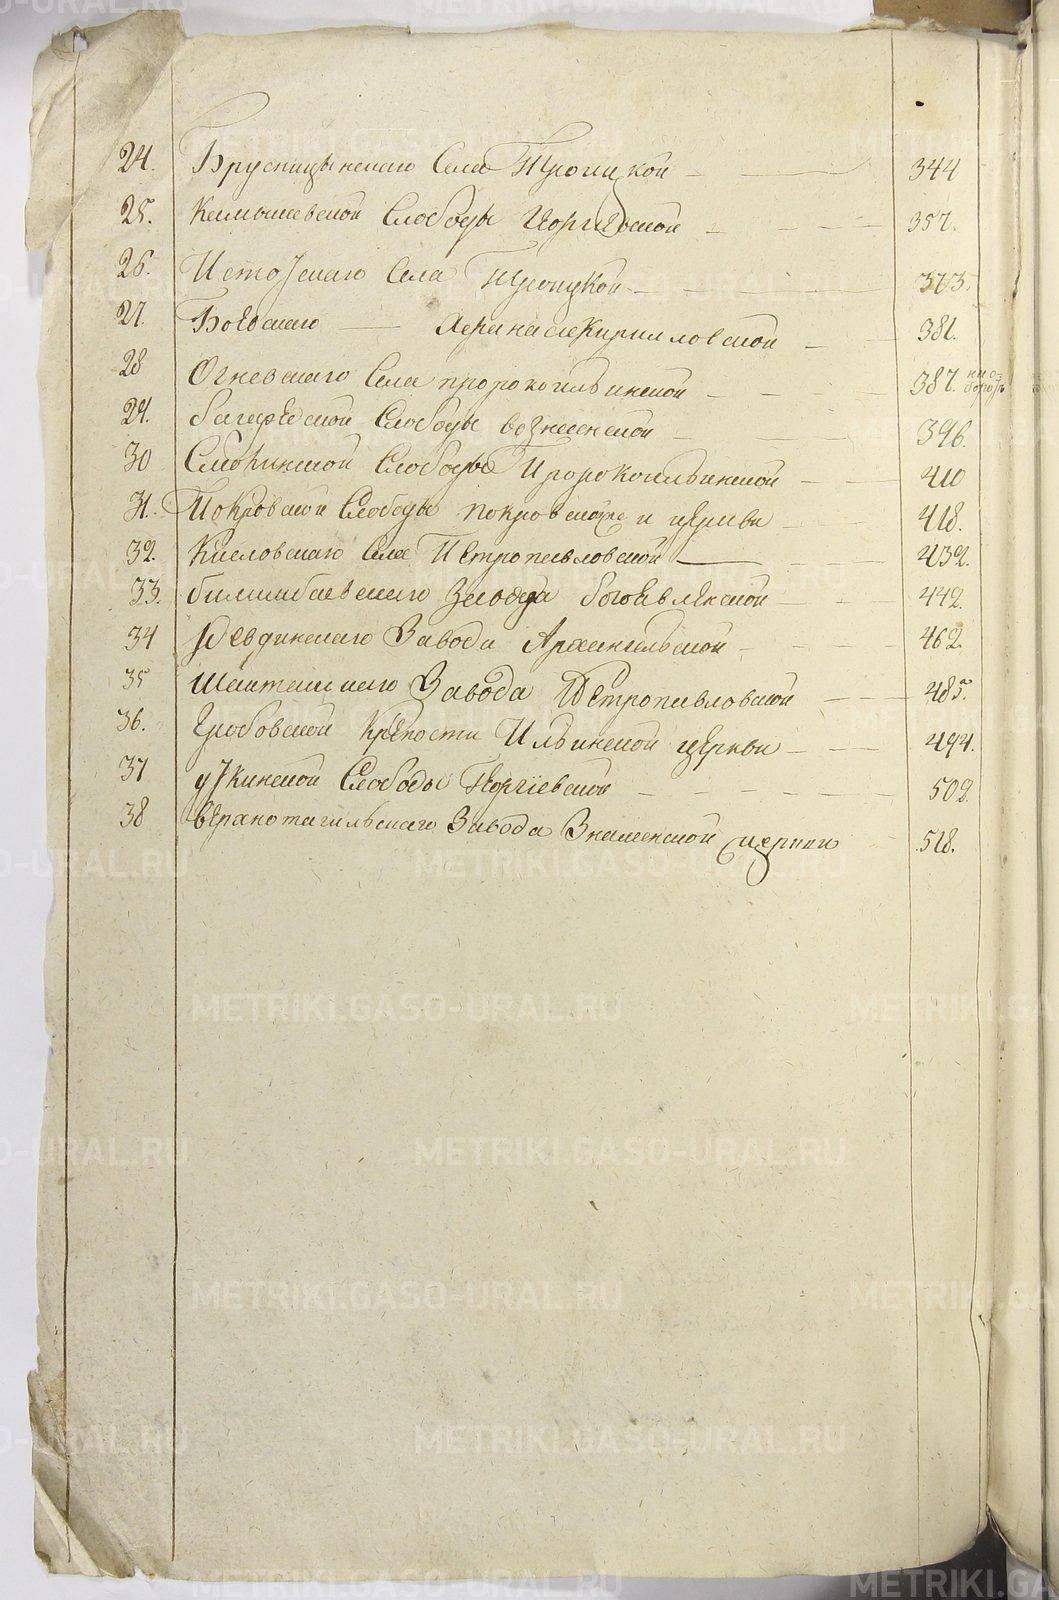 24. Брусницынскаго Села Троицкой 344
25. Камышевской Слободы Георгиевской 357.
26. Истокскаго Села Троицкой 373.
27. Боевскаго — Афанасиекирилловской 381.
28 Огневскаго Села пророкоильинской 387. на оборотѣ
29. Багарядской Слободы вознесенской 396.
30 Слободы Пророкоильинской 410
31. Покровской Слободы покровской церкви 418.
32. Кисловскаго Села Петропавловской 432.
33. билимбаевскаго Завода богоявленской 442.
34 Ревдинскаго Завода Архангельской 462.
35 Шайтанскаго Завода Петропавловской 485.
36. Гробовской Крѣпости Ильинской церкви 494.
37 уткинской Слободы Георгіевской 502.
38 верхнотагильскаго Завода Знаменской церкви 518.
METRIKI.GASO-URAL.RU